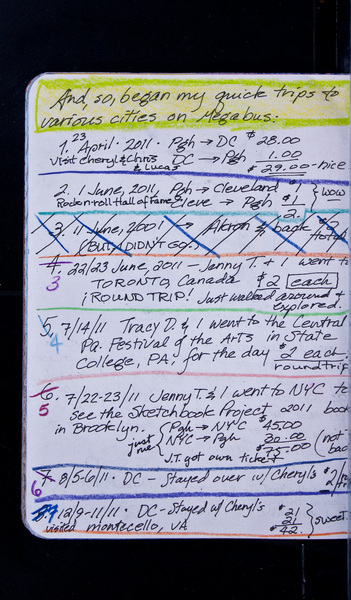 And, so, began my quick trips to
various cities on Megabus:
1. 23 April · 2011 · Pgh → DC $28.00
Visit Cheryl & Chris DC → Pgh 1.00
& Lucas $29.00 - nice
2. 1 June, 2011, Pgh → Cleveland $1
Rock n roll Hall of Fame Cleve → Pgh $1 } wow
2.
3. 11 June, 2001 → Akron & back
(BUT DIDN'T GO.)
4. 22/23 June, 2011 - Jenny T. + I went to
3 TORONTO, Canada $2 each
¡ROUND TRIP! Just walked around &
explored!
5. 7/14/11 Tracy D. & I went to the Central
4 Pa. Festival of the Arts in State
College, PA. for the day $2 each.
roundtrip
6. 7/22-23/11 Jenny T. & I went to NYC to
5 see the Sketchbook Project 2011
in Brooklyn. Pgh → NYC $45.00
just me { NYC → Pgh 30.00
$75.00 (not
J.T. got own ticket
7. 8/5-6/11 · DC - Stayed over w/ Cheryl $2/
6
8. 7 12/9-11/11 · DC - Stayed w/ Cheryl $21
visited Montecello, VA 21 } sweet.
$42.